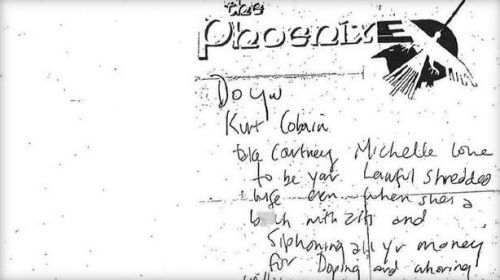 the
Phoenix
Do you
Kurt Cobain
take Courtney Michelle Love
to be your Lawful shredded
wife even when shes a
with zits and
Siphoning all yr money
for Doping and whoring